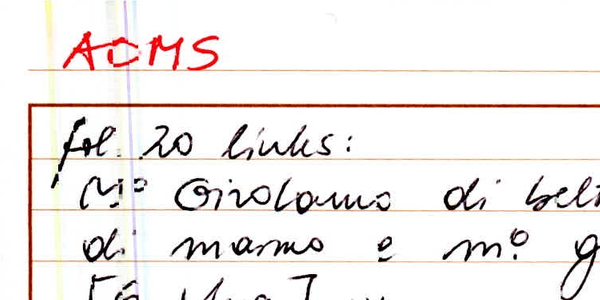 ACMS
fol. 20 links:
Mº Girolamo di bel
di marmo e mº. g